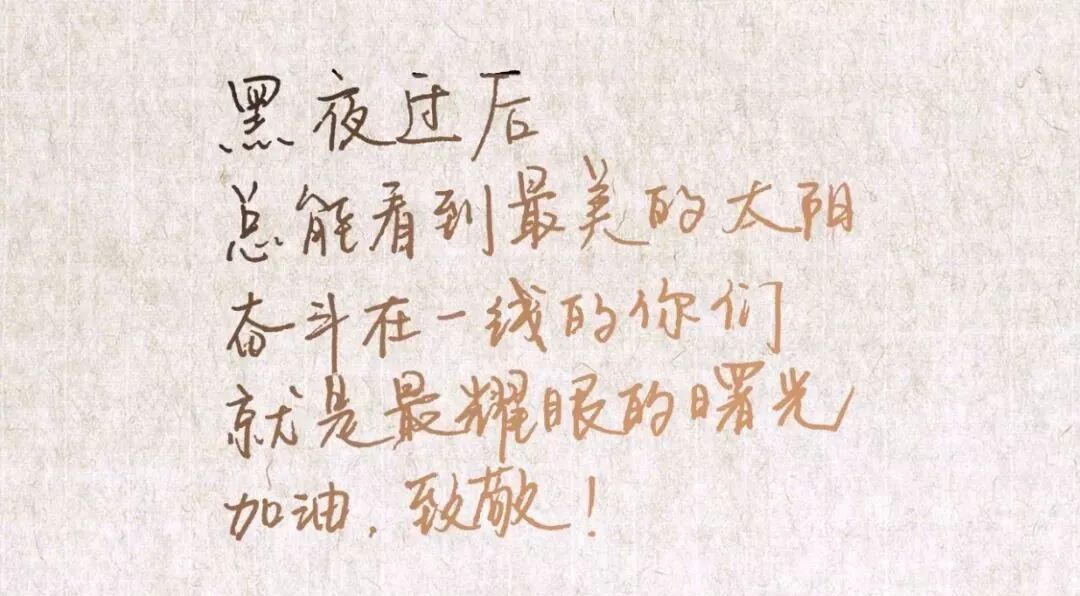 黑夜过后
总能看到最美的太阳
奋斗在一线的你们
就是最耀眼的曙光
加油，致敬！